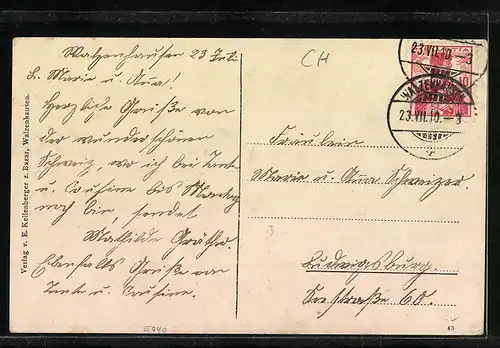 Walzenhausen 23 Juli.
L. Marie u. Anna!
Herzliche Grüße von
der wunderschönen
Schweiz, wo ich bei Tante
u. Cousine bis Montag
noch bin, sendet
Mathilde
Ebenfalls Grüße von
Tante u. Cousine.
Verlag v. E. Kellenberger z. Bazar, Walzenhausen.
CH
23.VII.10.–3
WALZENHAUSEN
23.VII.10.–3
Fräulein
Marie u. Anna Schweizer.
Ludwigsburg.
Seestraße 60.
43